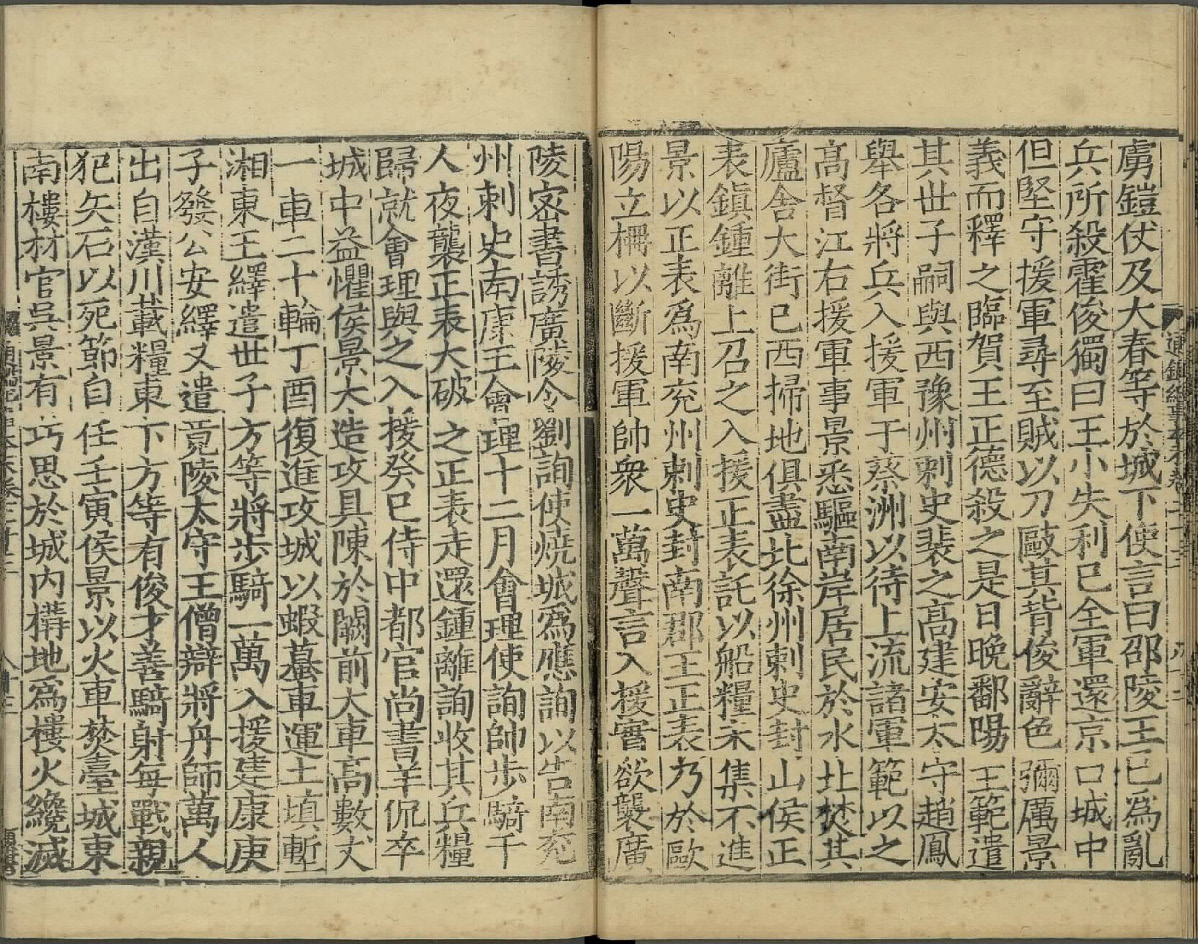 虜鎧仗及大春等於城下使言曰邵陵王已為亂
兵所殺霍俊獨曰王小失利已全軍還京口城中
但堅守援軍尋至賊以刀毆其背俊辭色彌厲景
義而釋之臨賀王正德殺之是日晚鄱陽王範遣
其世子嗣與西豫州刺史裴之高建安太守趙鳳
舉各將兵入援軍于蔡洲以待上流諸軍範以之
高督江右援軍事景悉驅南岸居民於水北焚其
廬舍大街已西掃地俱盡北徐州刺史封山侯正
表鎮鍾離上召之入援正表託以船糧未集不進
景以正表為南兖州刺史封南郡王正表乃於歐
陽立柵以斷援軍帥衆一萬聲言入援實欲襲廣
陵密書誘廣陵令劉詢使燒城為應詢以告南兖
州刺史南康王會理十二月會理使詢帥步騎千
人夜襲正表大破之正表走還鍾離詢收其兵糧
歸就會理與之入援癸巳侍中都官尚書羊侃卒
城中益懼侯景大造攻具陳於闕前大車高數丈
一車二十輪丁酉復進攻城以蝦蟇車運土填塹
湘東王繹遣世子方等將步騎一萬入援建康庚
子發公安繹又遣竟陵太守王僧辯將舟師萬人
出自漢川載糧東下方等有俊才善騎射每戰親
犯矢石以死節自任壬寅侯景以火車焚臺城東
南樓材官吳景有巧思於城內構地為樓火纔滅